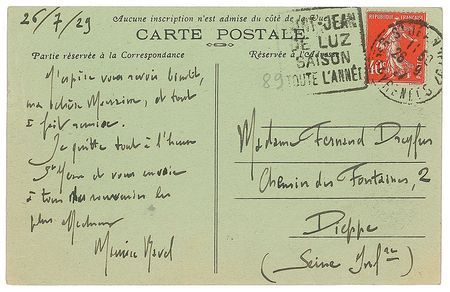 26/7/29
Aucune inscription n'est admise du côté de la Vue
CARTE POSTALE
Partie réservée à la Correspondance
Réservée à l'Adresse
SAINT-JEAN
DE LUZ
SAISON
TOUTE L'ANNÉE
89
J'espère vous revoir bientôt,
ma chère Marraine, et tout
à fait remise.
Je quitte tout à l'heure
St Jean et vous envoie
à tous des souvenirs les
plus affectueux
Maurice Ravel
Madame Fernand Dreyfus
Chemin des Fontaines, 2
Dieppe
(Seine Infre)